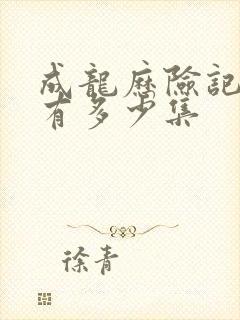 成龍歷險記
有多少集
徐青